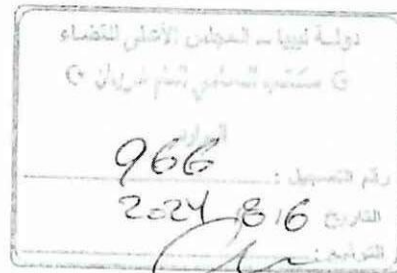 دولة ليبيا - المجلس الأعلى للقضاء
مكتب المحامي العام غريان
الوارد
رقم التسجيل : 966
التاريخ 2024/8/6
التوقيع :